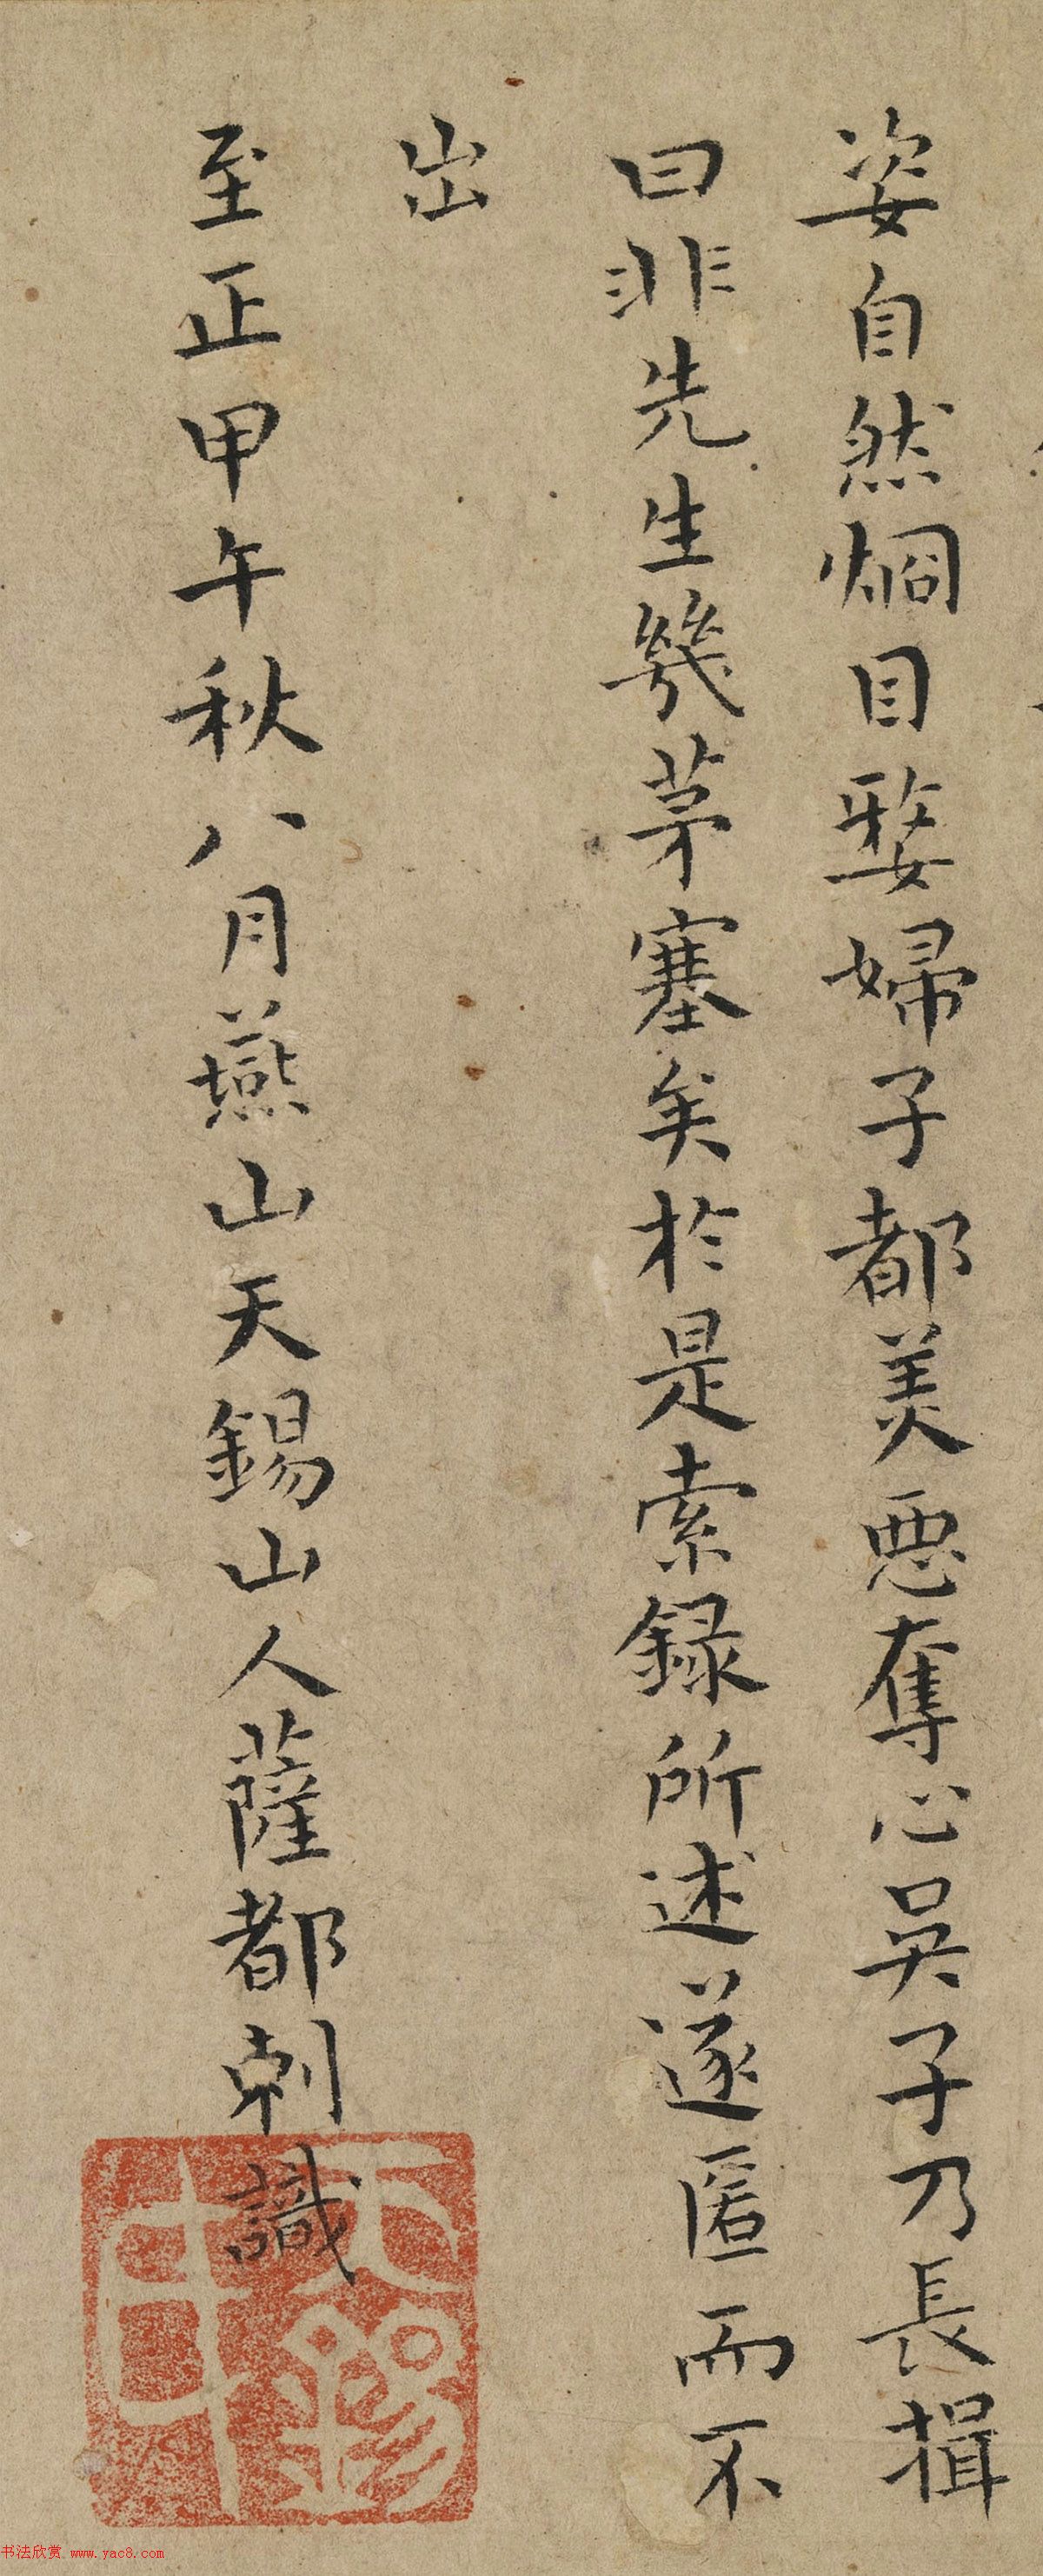 姿自然烱目婺婦子都美悪奪心吳子乃長揖
曰非先生幾茅塞矣於是索録所述遂匿而不
出
至正甲午秋八月燕山天錫山人薩都剌識
天錫
书法欣赏 www.yac8.com